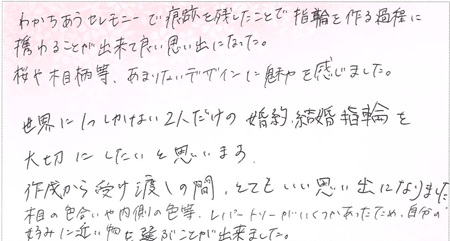 わかちあうセレモニーで痕跡を残したことで指輪を作る過程に
携わることが出来て良い思い出になった。
桜や木目柄等、あまりないデザインに魅力を感じました。
世界に1つしかない2人だけの婚約、結婚指輪を
大切にしたいと思います。
作成から受け渡しの間、とてもいい思い出になりました
木目の色合いや内側の色等、レパートリーがいくつかあったため、自分の
好みに近い物を選ぶことが出来ました。